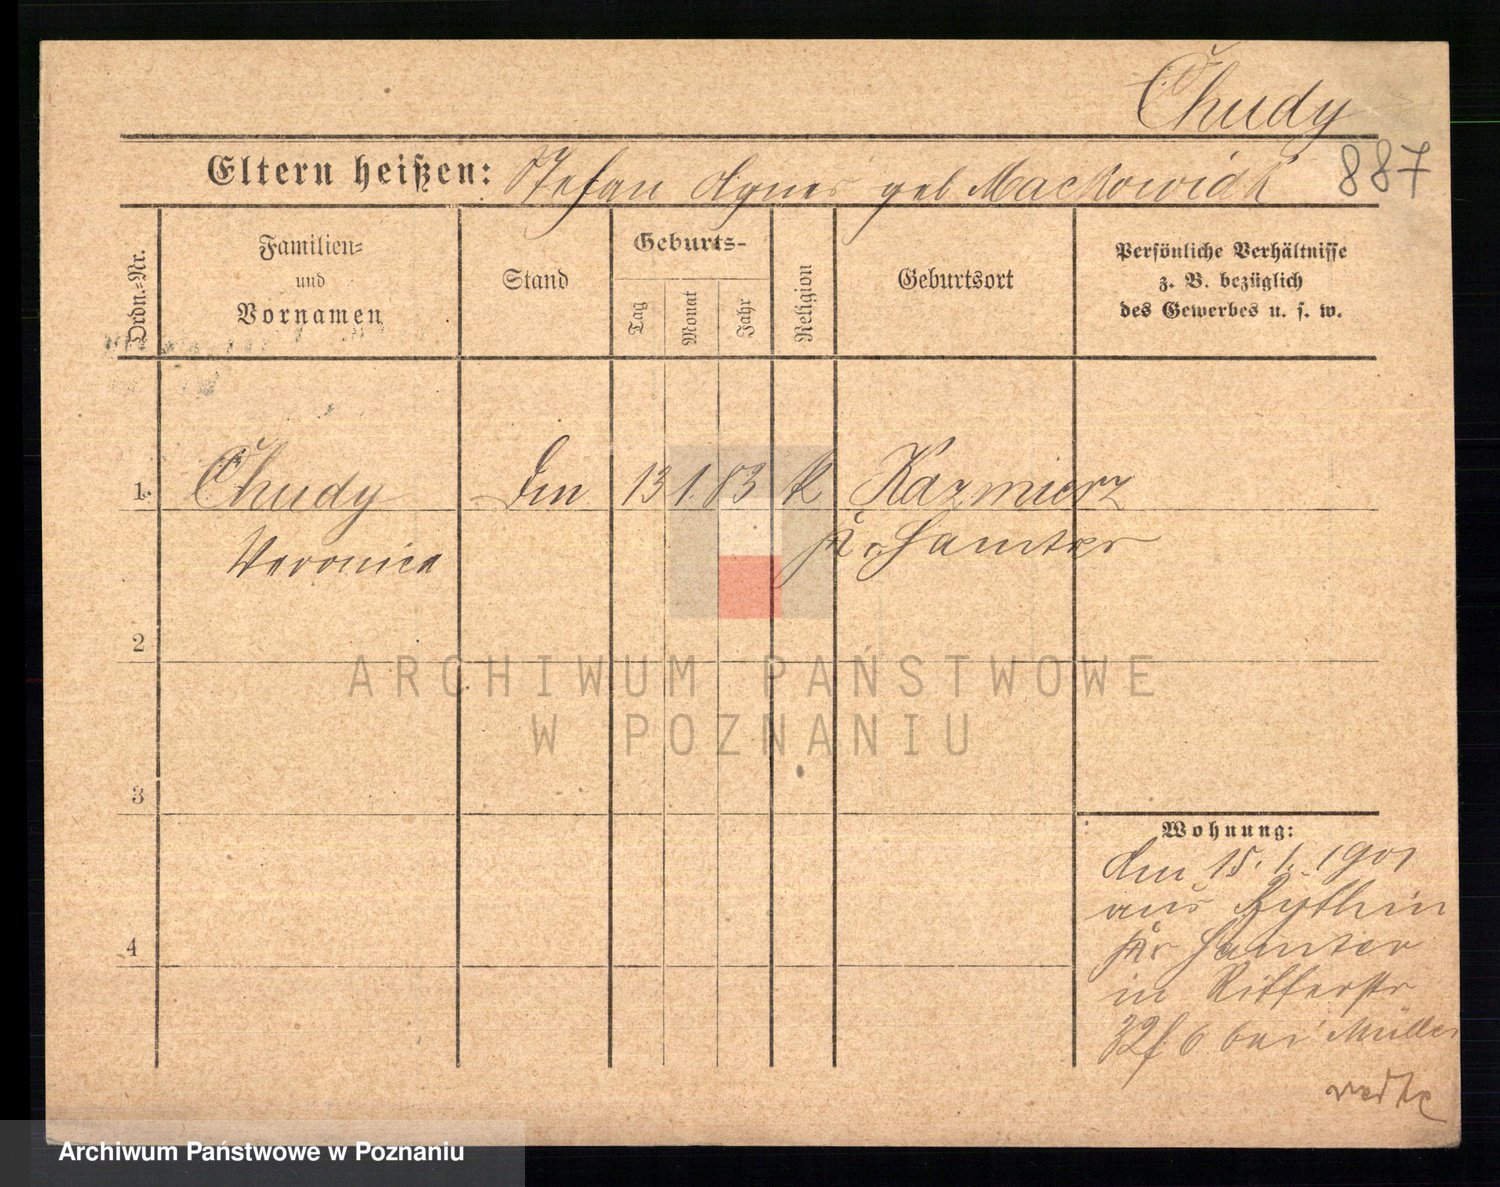 Chudy
887
Eltern heißen: Stefan Agnes geb Mackowiak
Ordn.-Nr.
Familien-
und
Vornamen
Stand
Geburts-
Tag
Monat
Jahr
Religion
Geburtsort
Persönliche Verhältnisse
z. B. bezüglich
des Gewerbes u. s. w.
1. Chudy 13 1. 83 K Kazmierz
Veronica Kr. Samter
2
3
4
Wohnung:
den 15. 1. 1901
aus Zythin
Kr Samter
in Ritterstr
32 6 bei Müller
ARCHIWUM PAŃSTWOWE
W POZNANIU
Archiwum Państwowe w Poznaniu